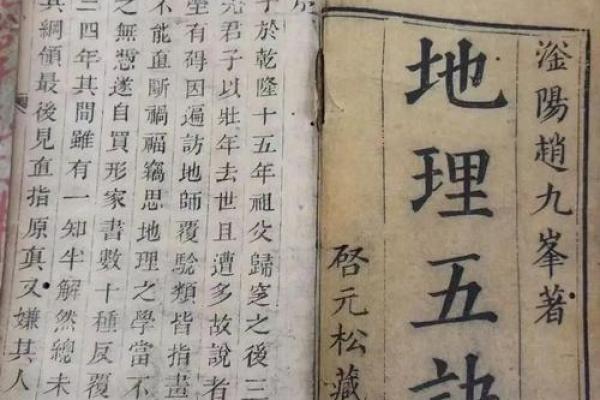 滏陽趙九峯著
地理五訣
啓元松藏
序
予於乾隆十五年祖父歸窆之後三
兄君子以壯年去世且遭多故說者
坐有碍因遍訪地師覆驗類皆指畫
不能直斷禍福竊思地理之學當不
之無憑遂自買形家書數十種反覆
三四年其間雖有一知半解然總未
其綱領最後見直指原真又嫌其人